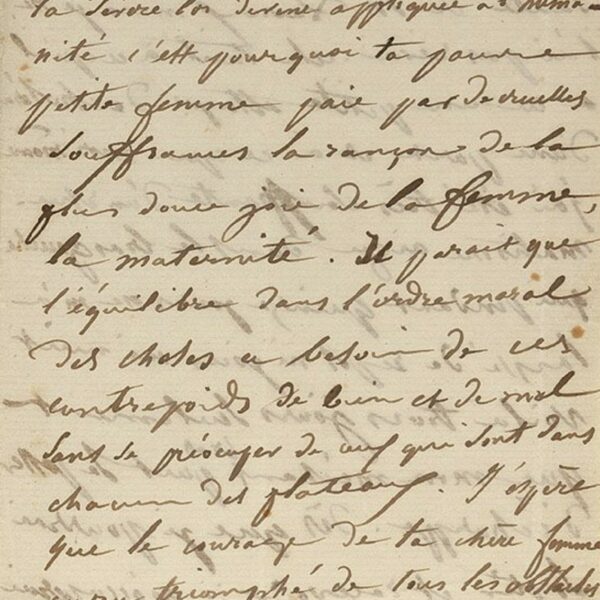 la sévère loi divine appliquée à l'huma-
nité c'est pourquoi ta pauvre
petite femme paie par de cruelles
souffrances la rançon de la
plus douce joie de la femme,
la maternité. Il parait que
l'équilibre dans l'ordre moral
des choses a besoin de ces
contrepoids de bien et de mal
sans se préocuper de ceux qui sont dans
chacun des plateaux. J'espère
que le courage de ta chère femme
triomphé de tous les obstacles